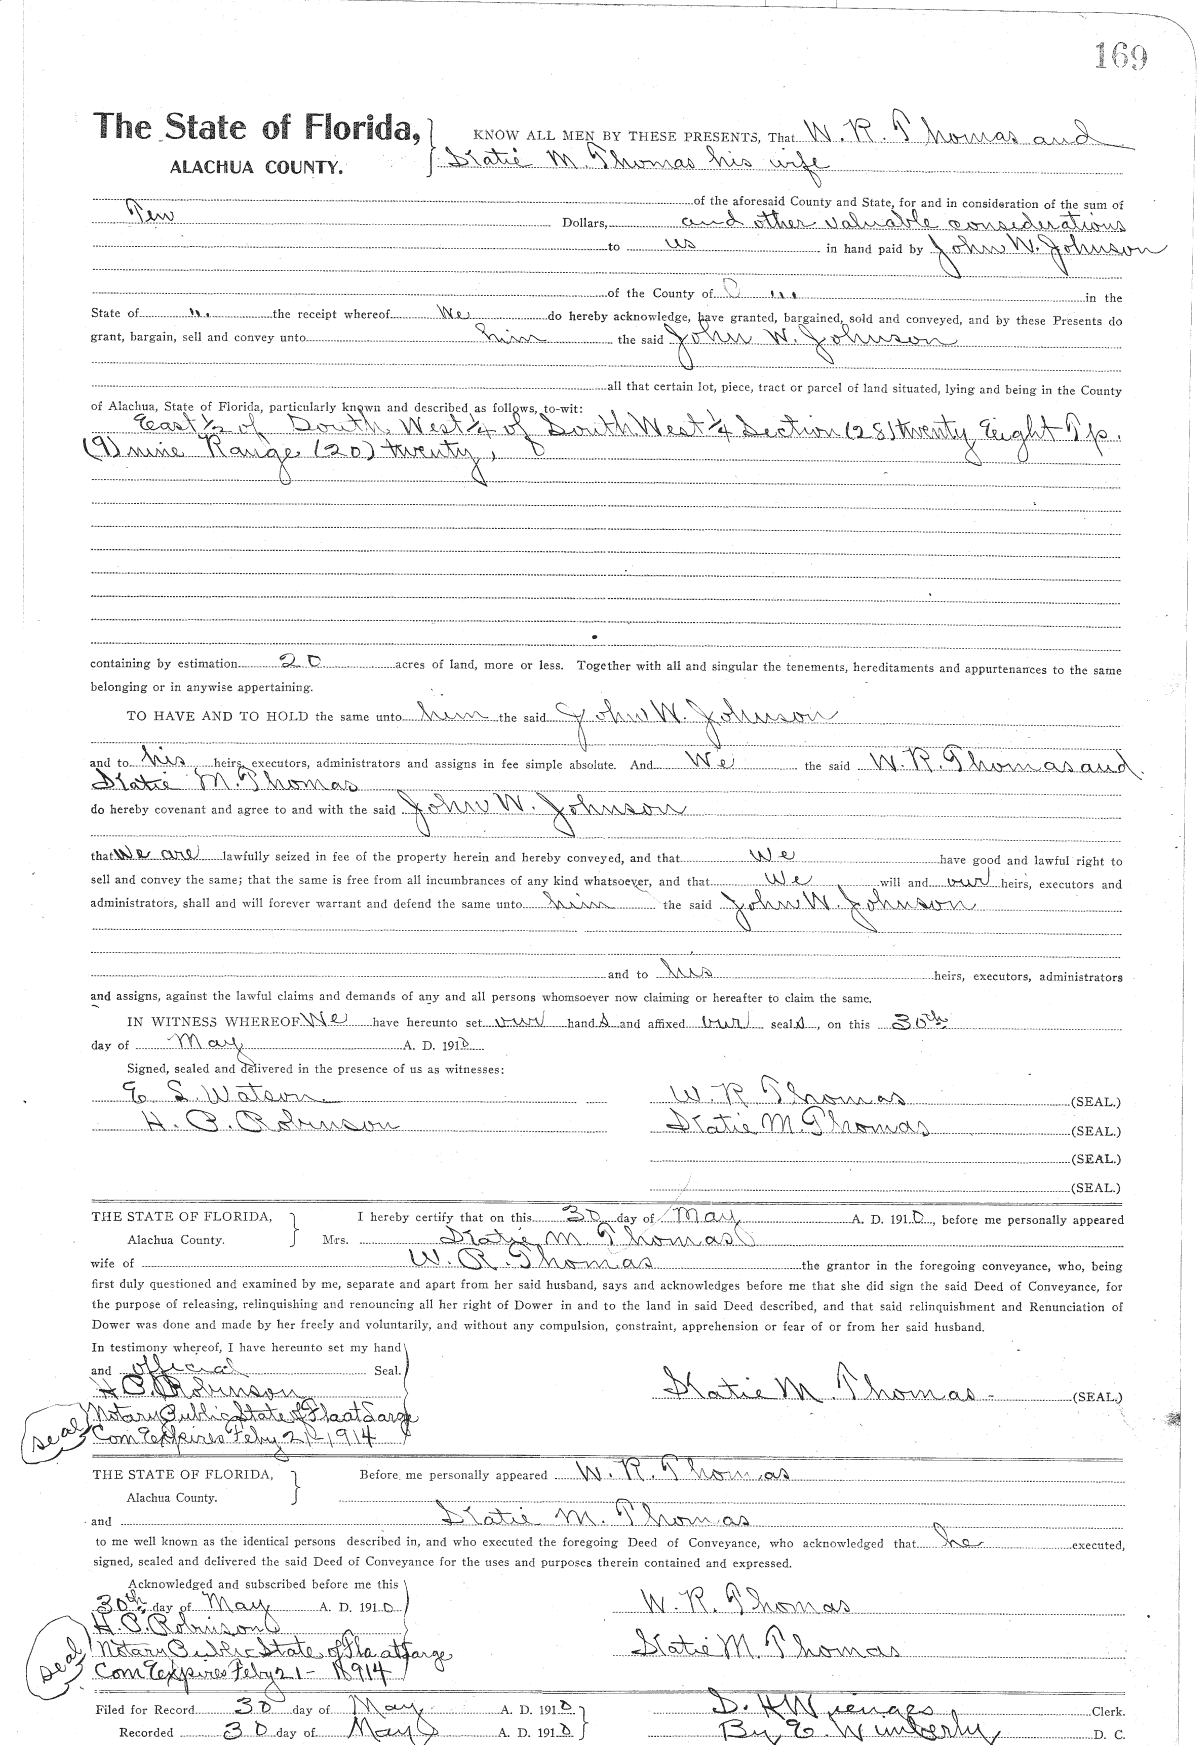 169
The State of Florida, KNOW ALL MEN BY THESE PRESENTS, That W. R. Thomas and
ALACHUA COUNTY. Katie M. Thomas his wife
of the aforesaid County and State, for and in consideration of the sum of
Ten Dollars, and other valuable considerations
to us in hand paid by John W. Johnson
of the County of in the
State of the receipt whereof We do hereby acknowledge, have granted, bargained, sold and conveyed, and by these Presents do
grant, bargain, sell and convey unto him the said John W. Johnson
all that certain lot, piece, tract or parcel of land situated, lying and being in the County
of Alachua, State of Florida, particularly known and described as follows, to-wit:
East 1/2 of South West 1/4 of South West 1/4 Section (28) twenty Eight Tp.
(9) nine Range (20) twenty,
containing by estimation 20 acres of land, more or less. Together with all and singular the tenements, hereditaments and appurtenances to the same
belonging or in anywise appertaining.
TO HAVE AND TO HOLD the same unto him the said John W. Johnson
and to his heirs, executors, administrators and assigns in fee simple absolute. And We the said W. R. Thomas and
Katie M. Thomas
do hereby covenant and agree to and with the said John W. Johnson
that we are lawfully seized in fee of the property herein and hereby conveyed, and that we have good and lawful right to
sell and convey the same; that the same is free from all incumbrances of any kind whatsoever, and that we will and our heirs, executors and
administrators, shall and will forever warrant and defend the same unto him the said John W. Johnson
and to his heirs, executors, administrators
and assigns, against the lawful claims and demands of any and all persons whomsoever now claiming or hereafter to claim the same.
IN WITNESS WHEREOF We have hereunto set our hands and affixed our seals, on this 30th
day of May A. D. 1910
Signed, sealed and delivered in the presence of us as witnesses:
E. S. Watson W. R. Thomas (SEAL.)
H. P. Robinson Katie M. Thomas (SEAL.)
(SEAL.)
(SEAL.)
THE STATE OF FLORIDA, I hereby certify that on this 30 day of May A. D. 1910, before me personally appeared
Alachua County. Mrs. Katie M Thomas
wife of W. R. Thomas the grantor in the foregoing conveyance, who, being
first duly questioned and examined by me, separate and apart from her said husband, says and acknowledges before me that she did sign the said Deed of Conveyance, for
the purpose of releasing, relinquishing and renouncing all her right of Dower in and to the land in said Deed described, and that said relinquishment and Renunciation of
Dower was done and made by her freely and voluntarily, and without any compulsion, constraint, apprehension or fear of or from her said husband.
In testimony whereof, I have hereunto set my hand
and official Seal.
H. P. Robinson Katie M Thomas (SEAL.)
seal Notary Public State of Fla at Large
Com Expires Feby 21-1914
THE STATE OF FLORIDA, Before me personally appeared W. R. Thomas
Alachua County.
and Katie M. Thomas
to me well known as the identical persons described in, and who executed the foregoing Deed of Conveyance, who acknowledged that he executed,
signed, sealed and delivered the said Deed of Conveyance for the uses and purposes therein contained and expressed.
Acknowledged and subscribed before me this
30th day of May A. D. 1910 W. R. Thomas
H. P. Robinson
seal Notary Public State of Fla at Large Katie M. Thomas
Com Expires Feby 21- 1914
Filed for Record 30 day of May A. D. 1910 D. H. Wienges Clerk.
Recorded 30 day of May A. D. 1910 By E. Wimberly D. C.